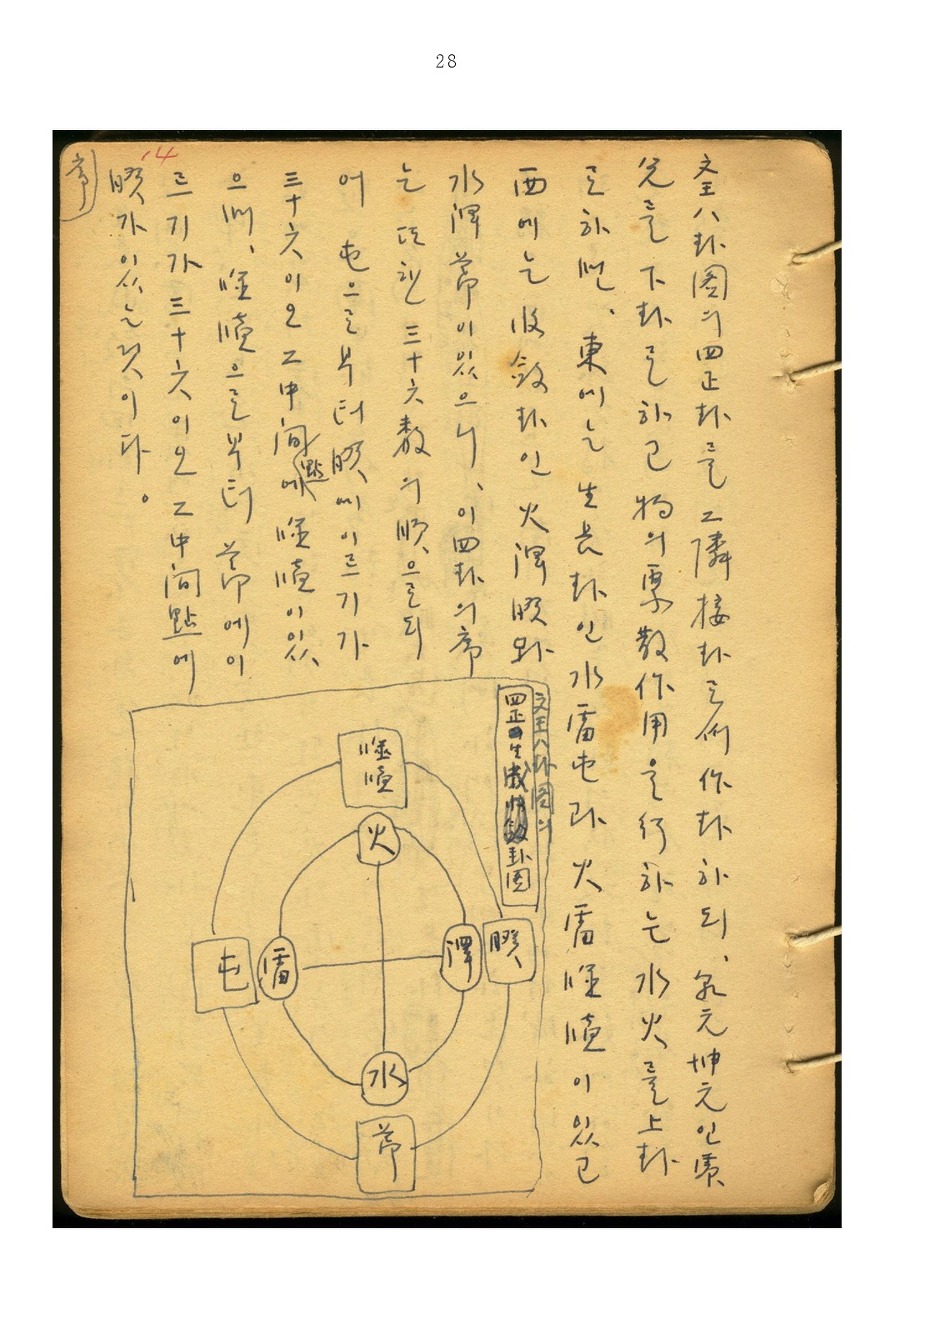 28
文王八卦圖의四正卦를그隣接卦로써作卦하되、乾元坤元인震
兌를下卦로하고物의聚散作用을行하는水火를上卦
로하면、東에는生長卦인水雷屯과火雷噬嗑이있고
西에는收斂卦인火澤睽와
水澤節이있으니、이四卦의序
는또한三十六數의順으로되
어屯으로부터睽에이르기가
三十六이오그中間點에噬嗑이있
으며、噬嗑으로부터節에이
르기가三十六이오그中間點에
睽가있는것이다。
14
序
文王八卦圖의
四正生成收斂卦圖
噬嗑
火
睽
澤
屯
雷
水
節